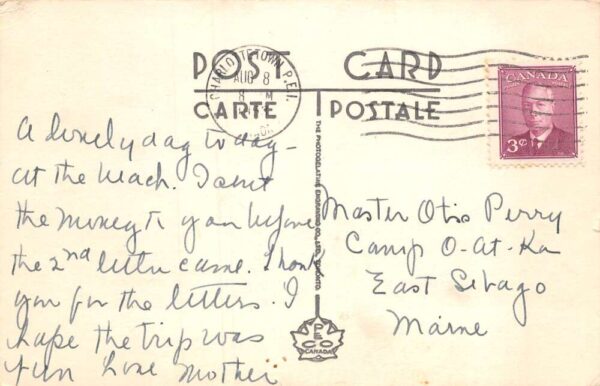 POST CARD
CARTE POSTALE
CHARLOTTETOWN P.E.I.
AUG 8
CANADA
3¢
A lovely day today -
at the beach. I sent
the money to you before
the 2nd letter came. Thank
you for the letters. I
hope the trip was
fun Love Mother
THE PHOTOGELATINE ENGRAVING CO., LTD., TORONTO
PECO
CANADA
Master Otis Perry
Camp O-At-Ka
East Sebago
Maine